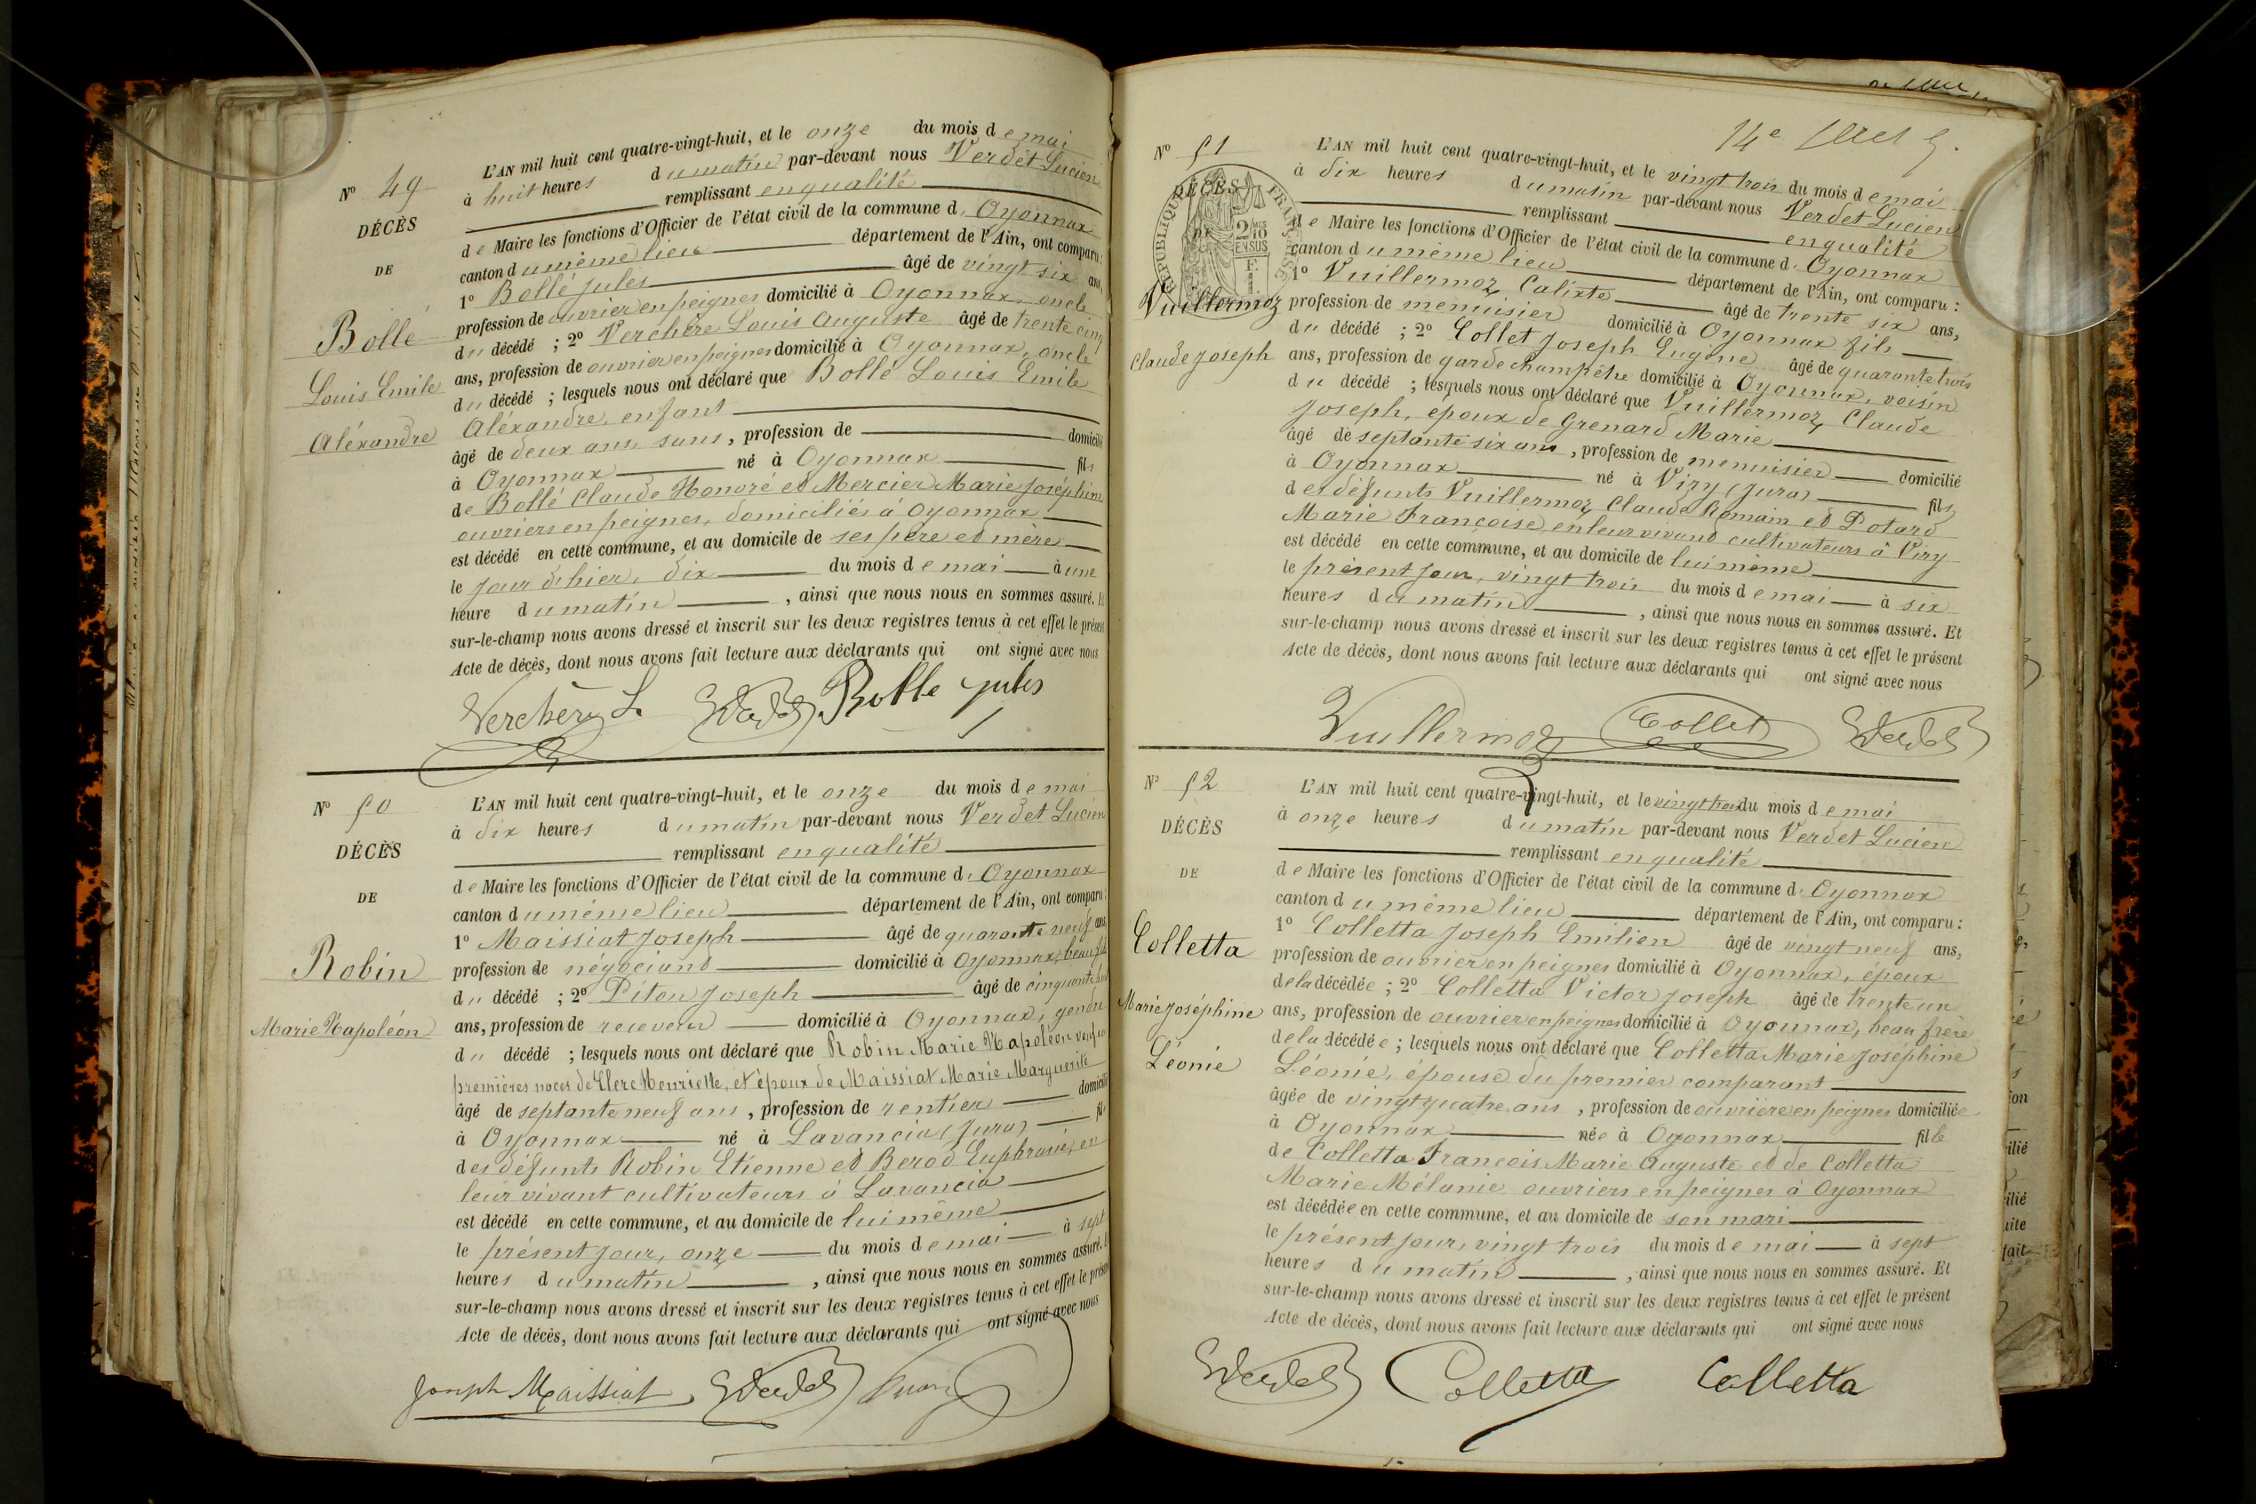 L'AN mil huit cent quatre-vingt-huit, et le onze du mois de mai
à huit heures du matin par-devant nous Verdet Lucien
remplissant en qualité
de Maire les fonctions d'Officier de l'état civil de la commune d'Oyonnax
canton du même lieu département de l'Ain, ont comparu :
1º Bollé Jules âgé de vingt six ans,
profession de ouvrier en peignes domicilié à Oyonnax, oncle
du décédé ; 2º Verchère Louis Auguste âgé de trente cinq
ans, profession de ouvrier en peignes domicilié à Oyonnax, oncle
du décédé ; lesquels nous ont déclaré que Bollé Louis Emile
Aléxandre, enfant
âgé de deux ans, sans, profession de domicilié
à Oyonnax né à Oyonnax fils
de Bollé Claude Honoré et Mercier Marie Joséphine
ouvriers en peignes, domiciliés à Oyonnax
est décédé en cette commune, et au domicile de ses père et mère
le jour d'hier, dix du mois de mai à une
heure du matin, ainsi que nous nous en sommes assuré. Et
sur-le-champ nous avons dressé et inscrit sur les deux registres tenus à cet effet le présent
Acte de décès, dont nous avons fait lecture aux déclarants qui ont signé avec nous
Nº 49
DÉCÈS
DE
Bollé
Louis Emile
Aléxandre
Verchère L. Bolle jules
Nº 50
DÉCÈS
DE
Robin
Marie Napoléon
L'AN mil huit cent quatre-vingt-huit, et le onze du mois de mai
à dix heures du matin par-devant nous Verdet Lucien
remplissant en qualité
de Maire les fonctions d'Officier de l'état civil de la commune d'Oyonnax
canton du même lieu département de l'Ain, ont comparu :
1º Maissiat Joseph âgé de quarante neuf ans,
profession de négociant domicilié à Oyonnax, beau fils
du décédé ; 2º Piton Joseph âgé de cinquante
ans, profession de receveur domicilié à Oyonnax, gendre
du décédé ; lesquels nous ont déclaré que Robin Marie Napoléon veuf en
premières noces de Clerc Henriette, et époux de Maissiat Marie Marguerite
âgé de septante neuf ans, profession de rentier domicilié
à Oyonnax né à Lavancia (Jura) fils
des défunts Robin Etienne et Berod Euphrasie, en
leur vivant cultivateurs à Lavancia
est décédé en cette commune, et au domicile de lui même
le présent jour, onze du mois de mai à sept
heures du matin, ainsi que nous nous en sommes assuré.
sur-le-champ nous avons dressé et inscrit sur les deux registres tenus à cet effet le présent
Acte de décès, dont nous avons fait lecture aux déclarants qui ont signé avec nous
Joseph Maissiat
14e
Nº 51
DÉCÈS
DE
RÉPUBLIQUE FRANÇAISE
2 MES 10
EN SUS
Vuillermoz
Claude Joseph
L'AN mil huit cent quatre-vingt-huit, et le vingt trois du mois de mai
à dix heures du matin par-devant nous Verdet Lucien
remplissant en qualité
de Maire les fonctions d'Officier de l'état civil de la commune d'Oyonnax
canton du même lieu département de l'Ain, ont comparu :
1º Vuillermoz Calixte âgé de trente six ans,
profession de menuisier domicilié à Oyonnax fils
du décédé ; 2º Collet Joseph Eugène âgé de quarante trois
ans, profession de garde champêtre domicilié à Oyonnax, voisin
du décédé ; lesquels nous ont déclaré que Vuillermoz Claude
Joseph, époux de Grenard Marie
âgé de septante six ans, profession de menuisier domicilié
à Oyonnax né à Viry (Jura) fils
des défunts Vuillermoz Claude Romain et Potard
Marie Françoise, en leur vivant cultivateurs à Viry
est décédé en cette commune, et au domicile de lui même
le présent jour, vingt trois du mois de mai à six
heures du matin, ainsi que nous nous en sommes assuré. Et
sur-le-champ nous avons dressé et inscrit sur les deux registres tenus à cet effet le présent
Acte de décès, dont nous avons fait lecture aux déclarants qui ont signé avec nous
Vuillermoz Collet
Nº 52
DÉCÈS
DE
Colletta
Marie Joséphine
Léonie
L'AN mil huit cent quatre-vingt-huit, et le vingt trois du mois de mai
à onze heures du matin par-devant nous Verdet Lucien
remplissant en qualité
de Maire les fonctions d'Officier de l'état civil de la commune d'Oyonnax
canton du même lieu département de l'Ain, ont comparu :
1º Colletta Joseph Emilien âgé de vingt neuf ans,
profession de ouvrier en peignes domicilié à Oyonnax, époux
de la décédée ; 2º Colletta Victor Joseph âgé de trente un
ans, profession de ouvrier en peignes domicilié à Oyonnax, beau frère
de la décédée ; lesquels nous ont déclaré que Colletta Marie Joséphine
Léonie, épouse du premier comparant
âgée de vingt quatre ans, profession de ouvrière en peignes domiciliée
à Oyonnax née à Oyonnax fille
de Colletta François Marie Auguste et de Colletta
Marie Mélanie ouvriers en peignes à Oyonnax
est décédée en cette commune, et au domicile de son mari
le présent jour, vingt trois du mois de mai à sept
heures du matin, ainsi que nous nous en sommes assuré. Et
sur-le-champ nous avons dressé et inscrit sur les deux registres tenus à cet effet le présent
Acte de décès, dont nous avons fait lecture aux déclarants qui ont signé avec nous
Colletta Colletta